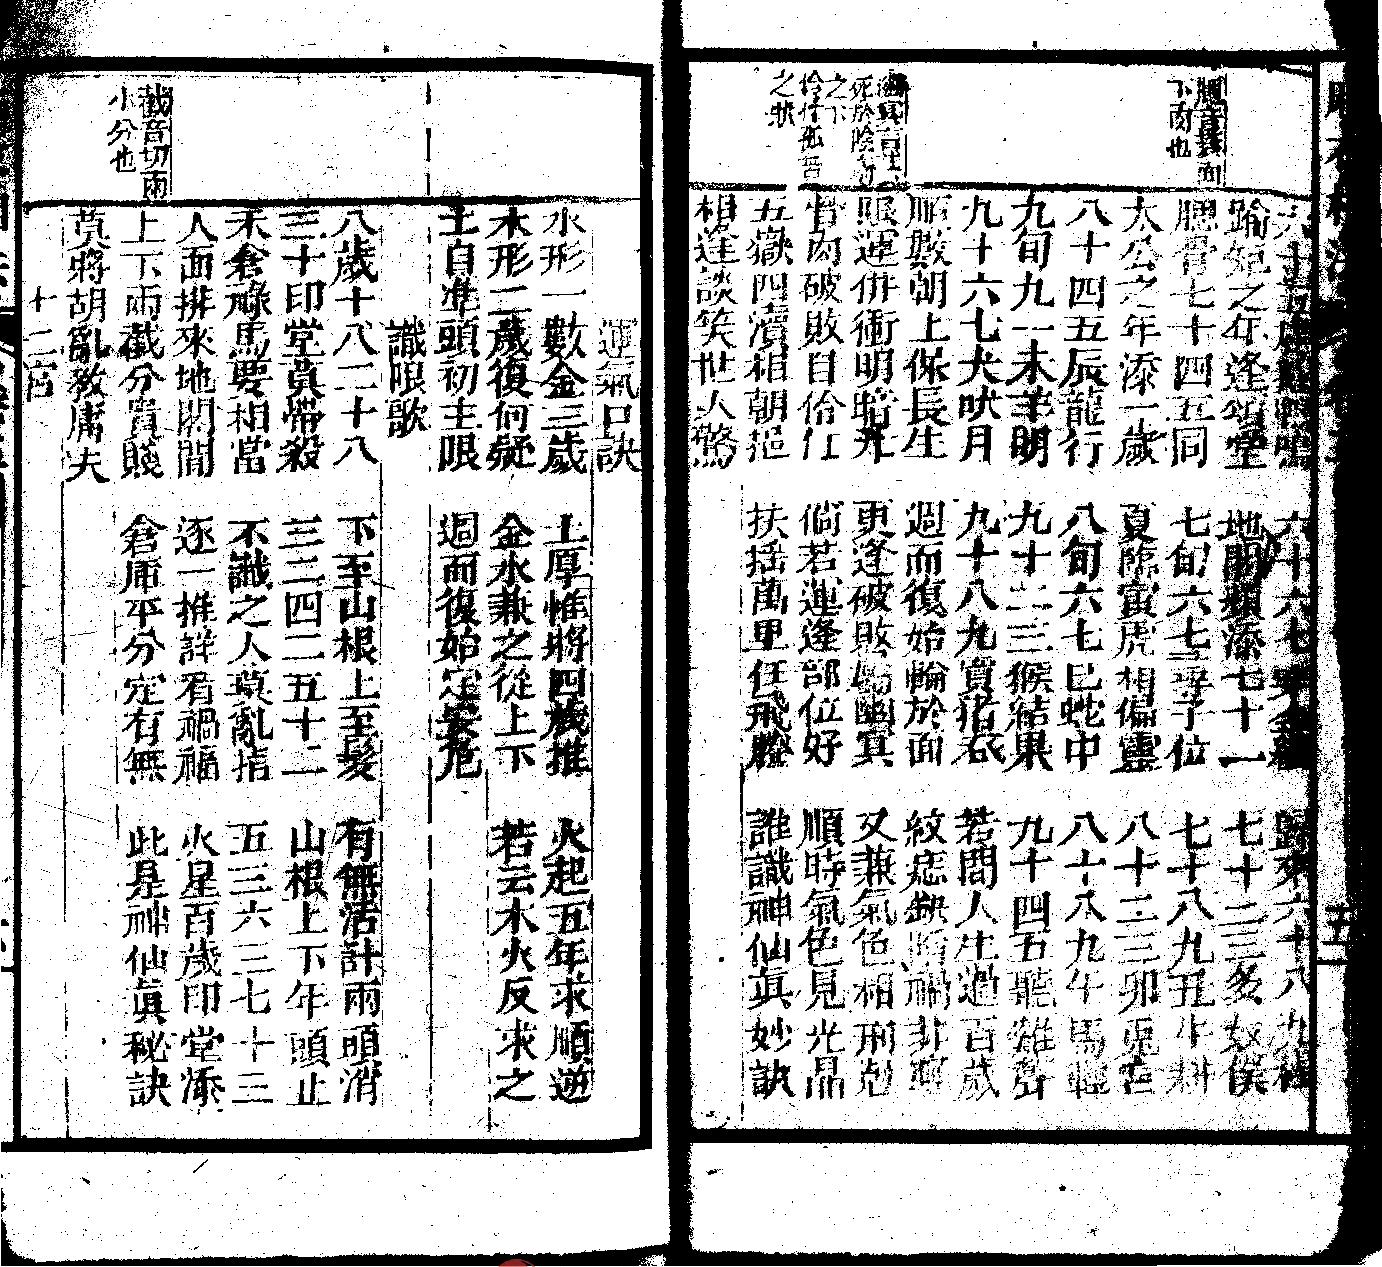 六十六七 歸來六十八九
踰矩之年逢頌堂 地閣頦添七十一 七十二三多奴僕
腮骨七十四五同 七旬六七尋子位 七十八九丑牛耕
太公之年添一歲 夏臨寅虎相偏靈 八十二三卯兎宮
八十四五辰龍行 八旬六七巳蛇中 八十八九午馬輕
九旬九一未羊明 九十二三猴結果 九十四五聽雞聲
九十六七犬吠月 九十八九買猪吞 若問人生過百歲
順數朝上保長生 週而復始輪於面 紋痣缺陷禍非輕
限運併衝明暗九 更逢破敗屬幽冥 又兼氣色相刑尅
骨肉破敗自伶仃 倘若運逢部位好 順時氣色見光晶
五嶽四瀆相朝挹 扶搖萬里任飛騰 誰識神仙眞妙訣
相逢談笑世人驚
腮音
下肉也
死於陰
之下
伶仃孤苦
之狀
運氣口訣
水形一數金三歲 土厚惟將四歲推 火起五年求順逆
木形二歲復何疑 金水兼之從上下 若云木火反求之
土自準頭初主限 週而復始定安危
識限歌
八歲十八二十八 下至山根上至髮 有無活計兩頭消
三十印堂莫帶殺 三二四二五十二 山根上下準頭止
禾倉祿馬要相當 不識之人莫亂指 五三六三七十三
人面排來地閣間 逐一推詳看禍福 火星百歲印堂添
上下兩截分貴賤 倉庫平分定有無 此是神仙眞秘訣
莫將胡亂教庸夫
十二宮
截音切兩
小分也